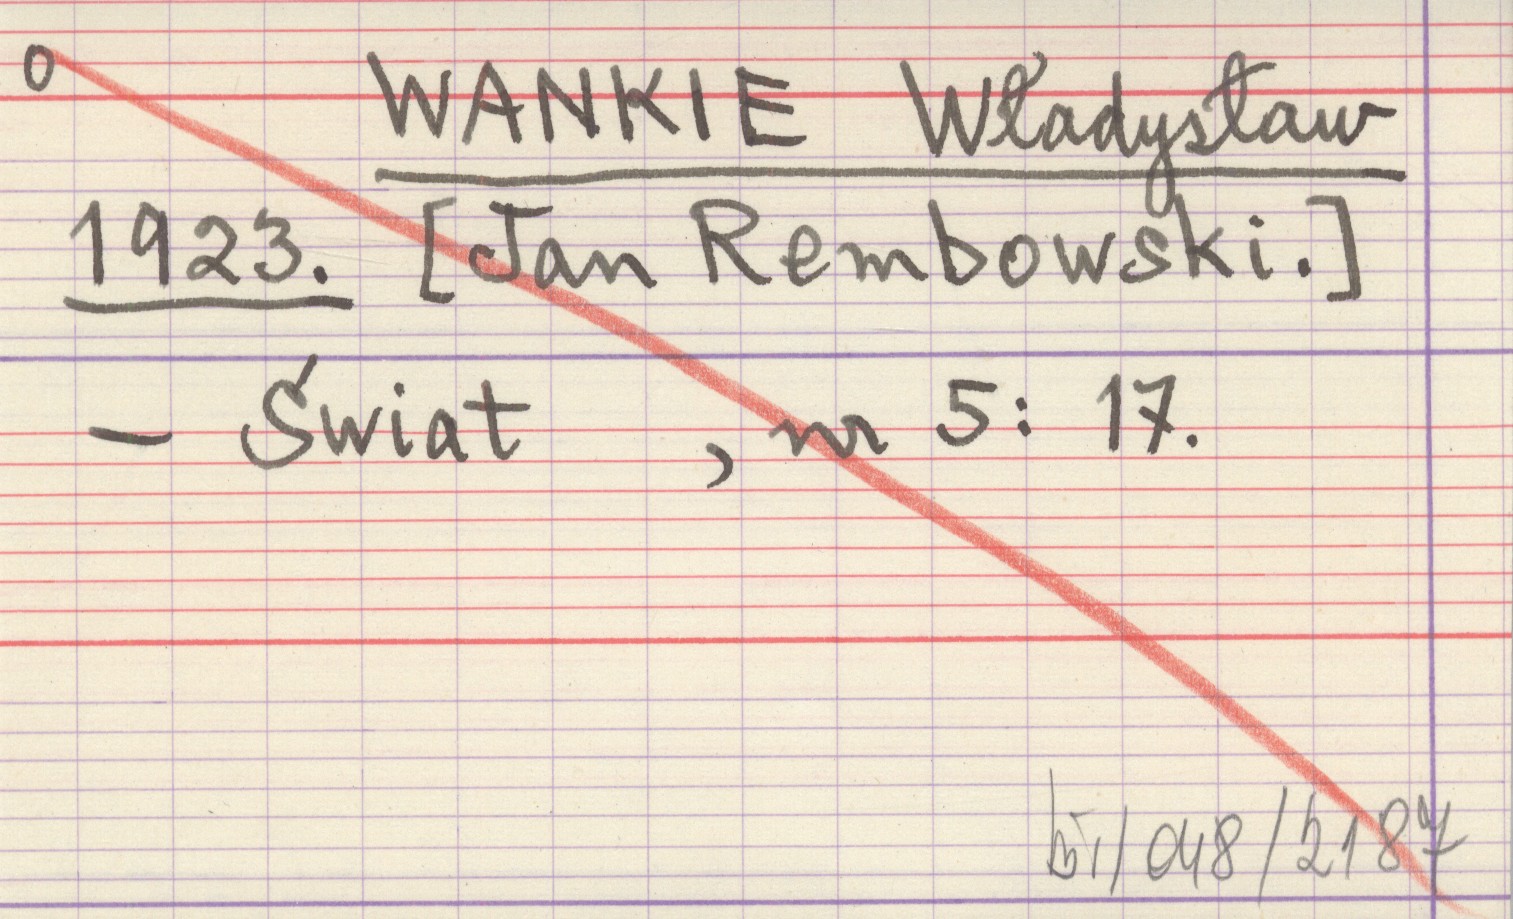 0 WANKIE Władysław
1923. [Jan Rembowski.]
- Świat , nr 5: 17.
/048/2187